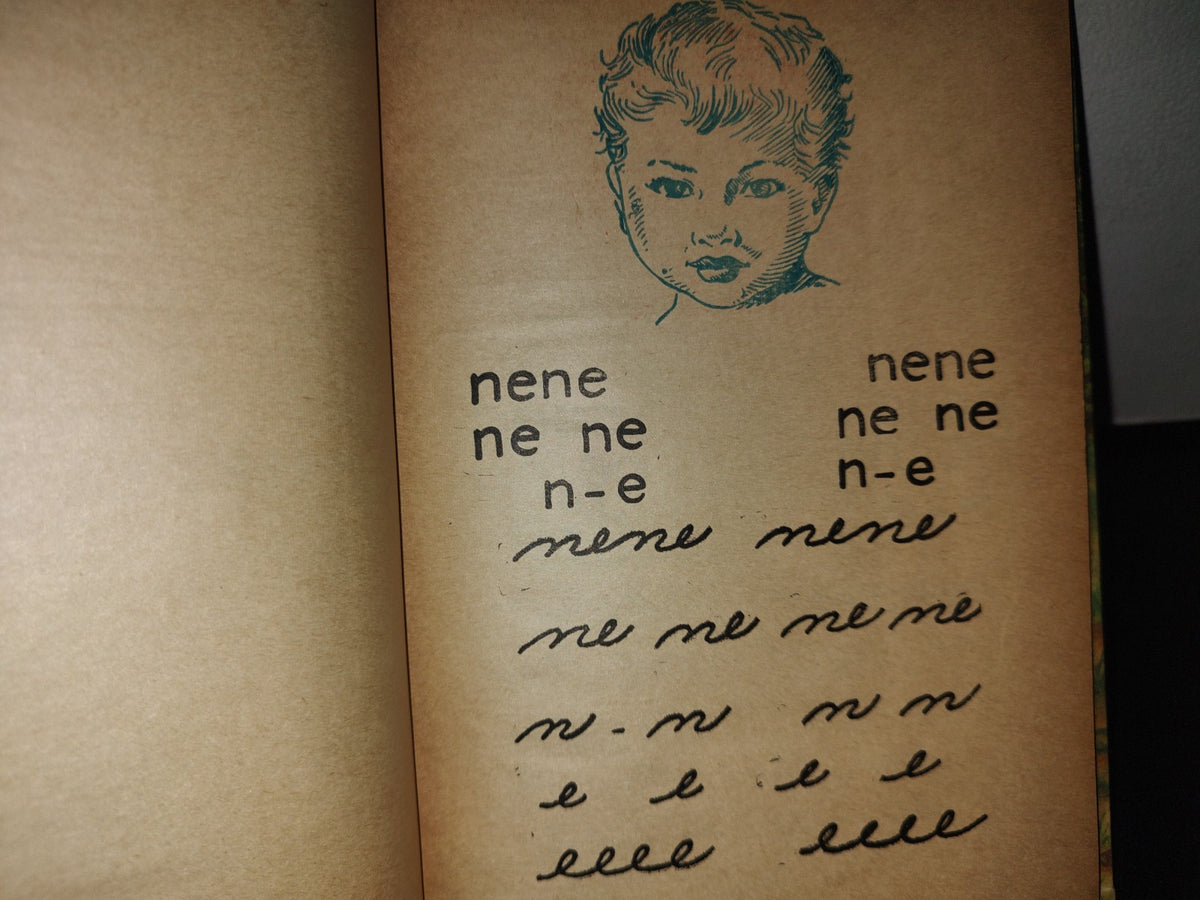 nene nene
ne ne ne ne
n-e n-e
nene nene
ne ne ne ne
n - n n n
e e e e
eeee eeee